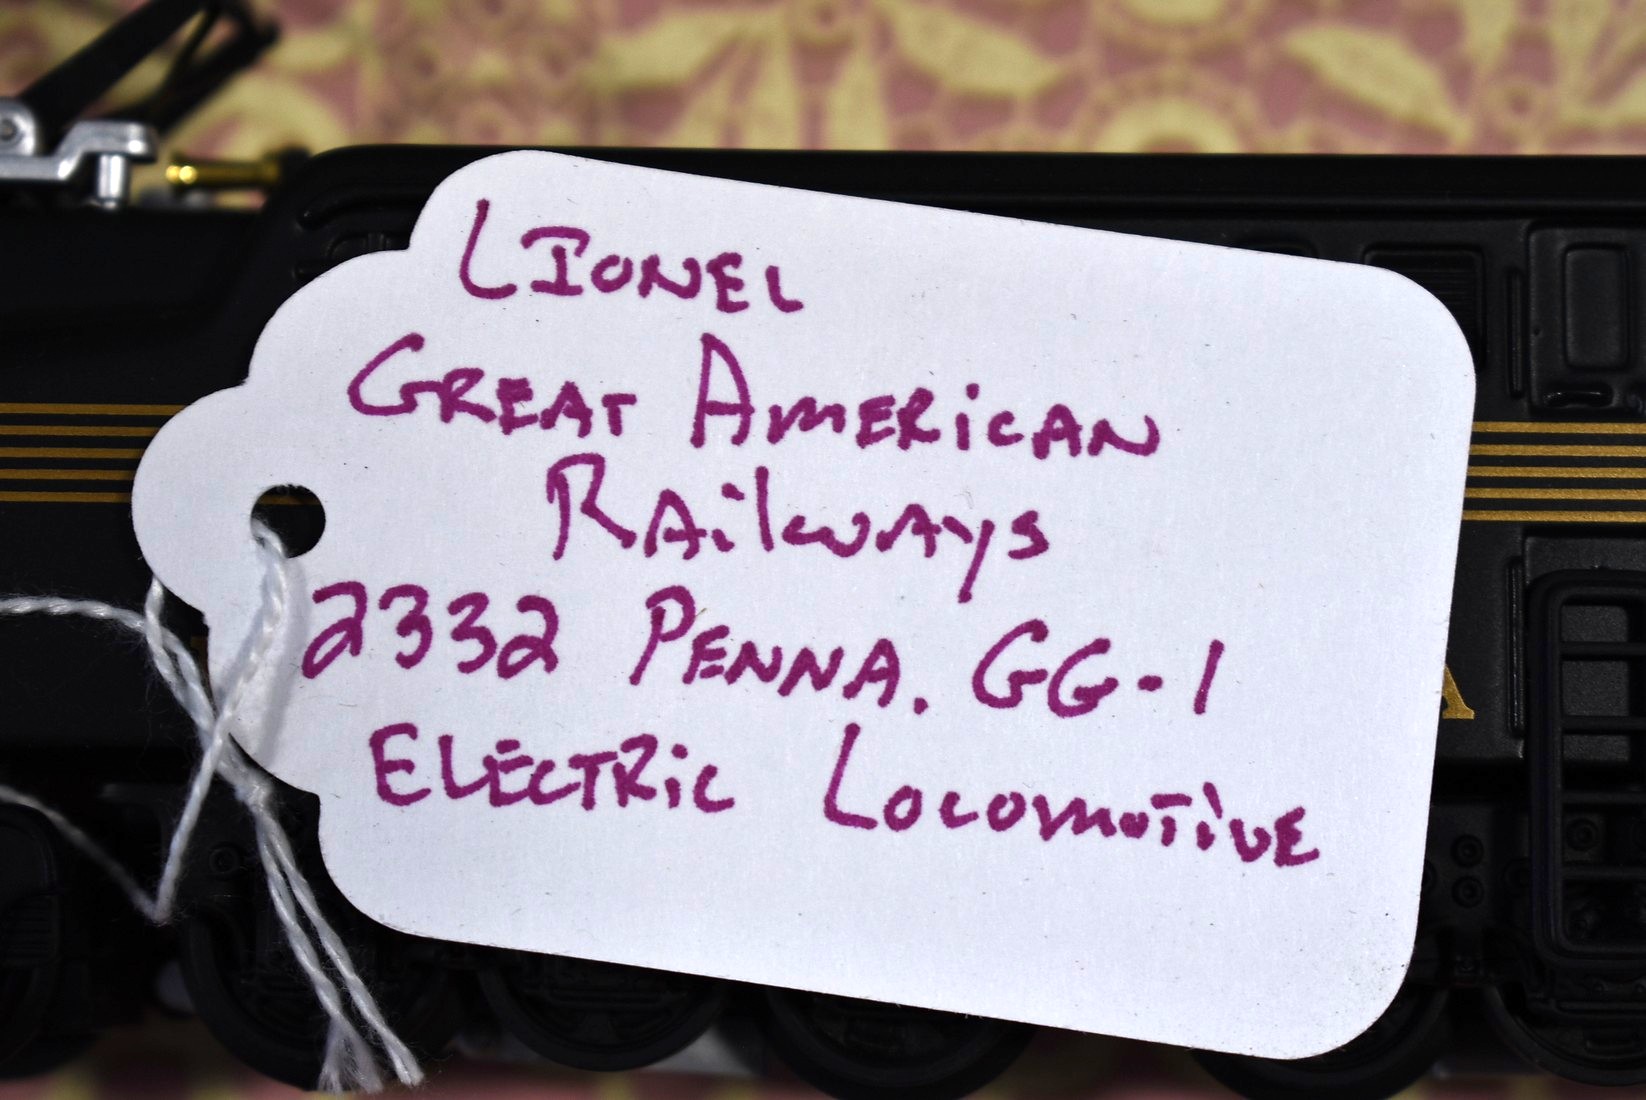 Lionel
Great American
Railways
2332 Penna. GG-1
Electric Locomotive
A